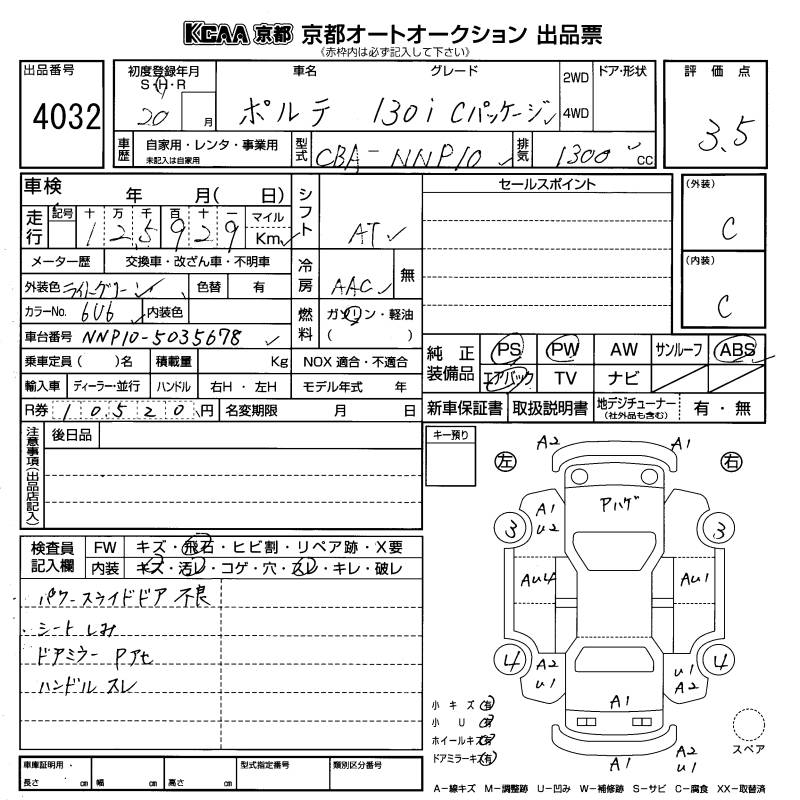 KCAA 京都 京都オートオークション 出品票
《赤枠内は必ず記入して下さい》
出品番号
4032
初度登録年月
S・H・R
20 月
車名
グレード
ポルテ 130i Cパッケージ
2WD
4WD
ドア・形状
評価点
3.5
車歴
自家用・レンタ・事業用
未記入は自家用
型式
CBA-NNP10
排気
1300 cc
車検 年 月( 日)
走行
記号 十 万 千 百 十 一
1 2 5 9 2 9
マイル
Km
メーター歴 交換車・改ざん車・不明車
外装色 ライトグリーン 色替 有
カラーNo. 6U6 内装色
車台番号 NNP10-5035678
乗車定員( )名 積載量 Kg NOX 適合・不適合
輸入車 ディーラー・並行 ハンドル 右H・左H モデル年式 年
R券 10520円 名変期限 月 日
シフト AT
冷房 AAC 無
燃料 ガソリン・軽油
( )
セールスポイント
(外装)
C
(内装)
C
純正装備品
PS PW AW サンルーフ ABS
エアバック TV ナビ
新車保証書 取扱説明書 地デジチューナー
(社外品も含む)
有・無
注意事項(出品店記入)
後日品
キー預り
検査員記入欄
FW キズ・飛石・ヒビ割・リペア跡・X要
内装 キズ・汚レ・コゲ・穴・スレ・キレ・破レ
パワースライドドア 不良
シートしみ
ドアミラー Pアセ
ハンドル スレ
左
右
A2
A1
Pハゲ
A1
U2
3
3
AU4
AU1
4
A2
U1
U1
A2
4
A1
A1
A2
U1
小キズ 有
小U 有
ホイールキズ 有
ドアミラーキズ 有
スペア
車庫証明用・
長さ cm 幅 cm 高さ cm
型式指定番号
類別区分番号
A−線キズ M−調整跡 U−凹み W−補修跡 S−サビ C−腐食 XX−取替済